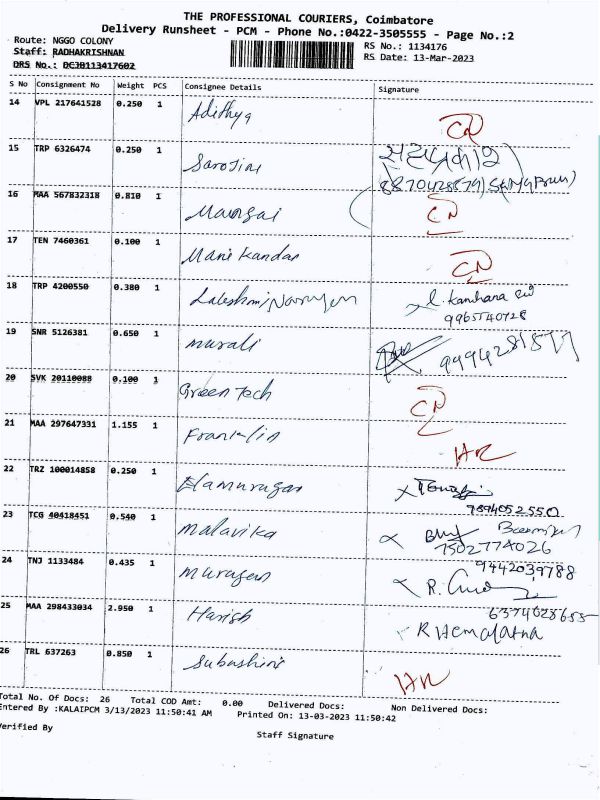 THE PROFESSIONAL COURIERS, Coimbatore
Delivery Runsheet - PCM - Phone No.:0422-3505555 - Page No.:2
Route: NGGO COLONY RS No.: 1134176
Staff: RADHAKRISHNAN RS Date: 13-Mar-2023
DRS No.: DCJ0113417602
S No Consignment No Weight PCS Consignee Details Signature
14 VPL 217641528 0.250 1 Adithya CN
15 TRP 6326474 0.250 1 Sarojini
16 MAA 567832318 0.810 1 Mangai CN
17 TEN 7460361 0.100 1 Mani Kandan CN
18 TRP 4200550 0.380 1 Lakshmi Narayan
9965740728
19 SNR 5126381 0.650 1 murali
20 SVK 20110088 0.100 1 Green Tech CN
21 MAA 297647331 1.155 1 Franklin HR
22 TRZ 100014858 0.250 1 Elamurugan
7894052550
23 TCG 40418451 0.540 1 Malavika
7502774026
24 TNJ 1133484 0.435 1 Murugan 9442039788
25 MAA 298433034 2.950 1 Harish 6374628655
R Hemalatha
26 TRL 637263 0.850 1 Subashini HR
Total No. Of Docs: 26 Total COD Amt: 0.00 Delivered Docs: Non Delivered Docs:
Entered By :KALAIPCM 3/13/2023 11:50:41 AM Printed On: 13-03-2023 11:50:42
Verified By Staff Signature